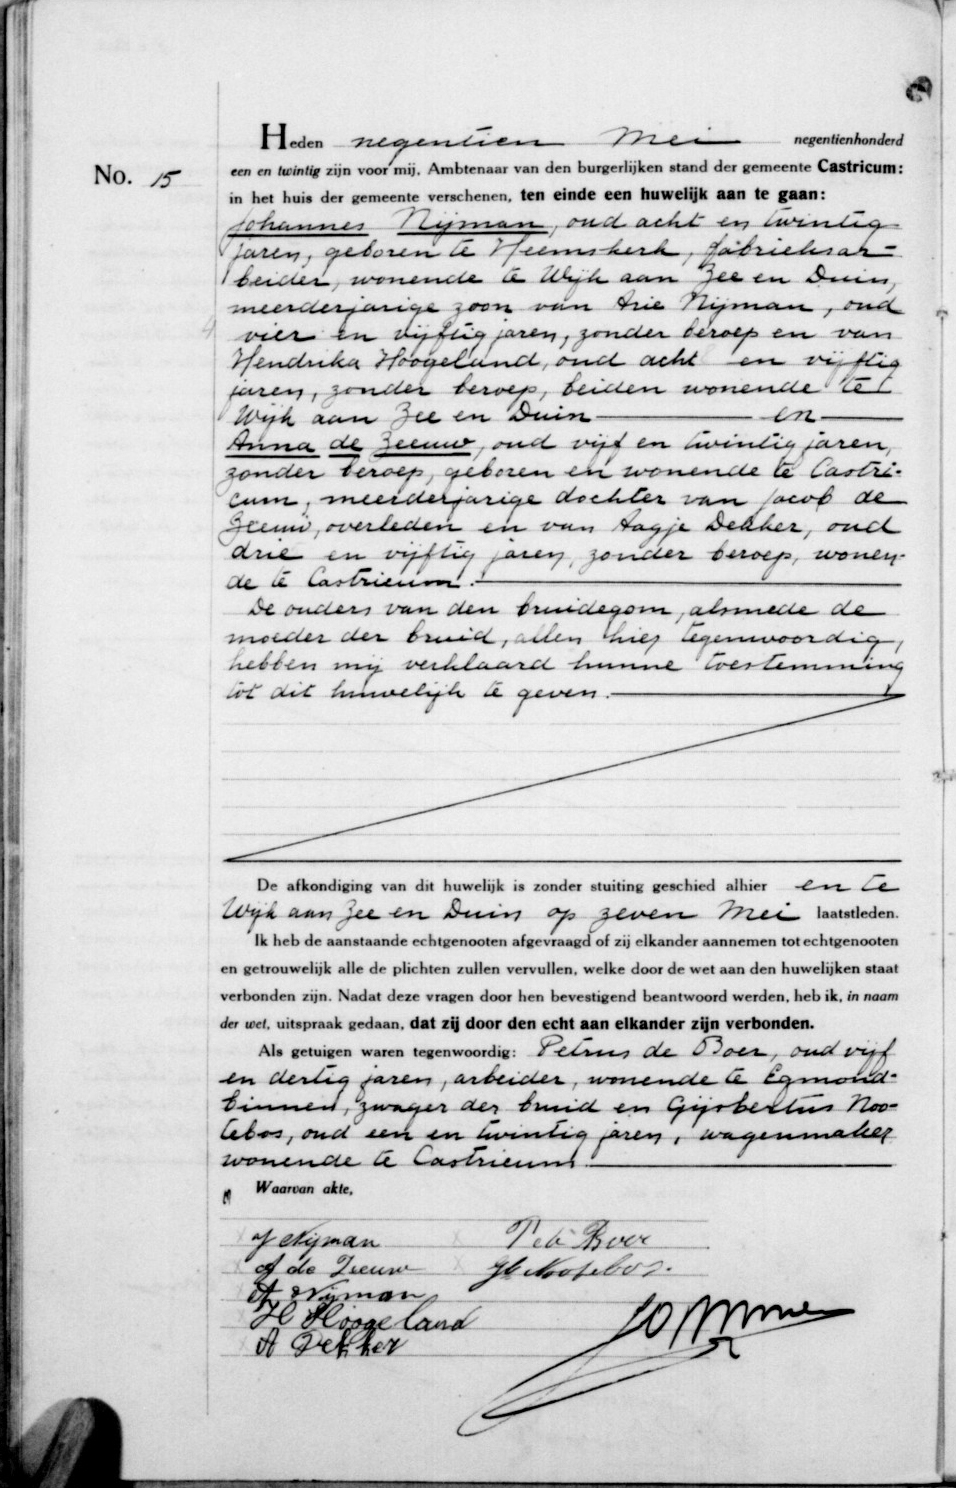 No. 15
Heden negentien Mei negentienhonderd
een en twintig zijn voor mij, Ambtenaar van den burgerlijken stand der gemeente Castricum:
in het huis der gemeente verschenen, ten einde een huwelijk aan te gaan:
Johannes Nijman, oud acht en twintig
jaren, geboren te Heemskerk, fabrieksar=
beider, wonende te Wijk aan Zee en Duin,
meerderjarige zoon van Arie Nijman, oud
vier en vijftig jaren, zonder beroep en van
Hendrika Hoogeland, oud acht en vijftig
jaren, zonder beroep, beiden wonende te
Wijk aan Zee en Duin en
Anna de Zeeuw, oud vijf en twintig jaren,
zonder beroep, geboren en wonende te Castri-
cum, meerderjarige dochter van Jacob de
Zeeuw, overleden en van Aagje Dekker, oud
drie en vijftig jaren, zonder beroep, wonen-
de te Castricum.
De ouders van den bruidegom, alsmede de
moeder der bruid, allen hier tegenwoordig,
hebben mij verklaard hunne toestemming
tot dit huwelijk te geven.
De afkondiging van dit huwelijk is zonder stuiting geschied alhier en te
Wijk aan Zee en Duin op zeven Mei laatstleden.
Ik heb de aanstaande echtgenooten afgevraagd of zij elkander aannemen tot echtgenooten
en getrouwelijk alle de plichten zullen vervullen, welke door de wet aan den huwelijken staat
verbonden zijn. Nadat deze vragen door hen bevestigend beantwoord werden, heb ik, in naam
der wet, uitspraak gedaan, dat zij door den echt aan elkander zijn verbonden.
Als getuigen waren tegenwoordig: Petrus de Boer, oud vijf
en dertig jaren, arbeider, wonende te Egmond-
binnen, zwager der bruid en Gijsbertus Noo-
tebos, oud een en twintig jaren, wagenmaker
wonende te Castricum.
Waarvan akte,
J Nijman P de Boer
A de Zeeuw Gb Nootebos.
A Nijman
H Hoogeland
A Dekker